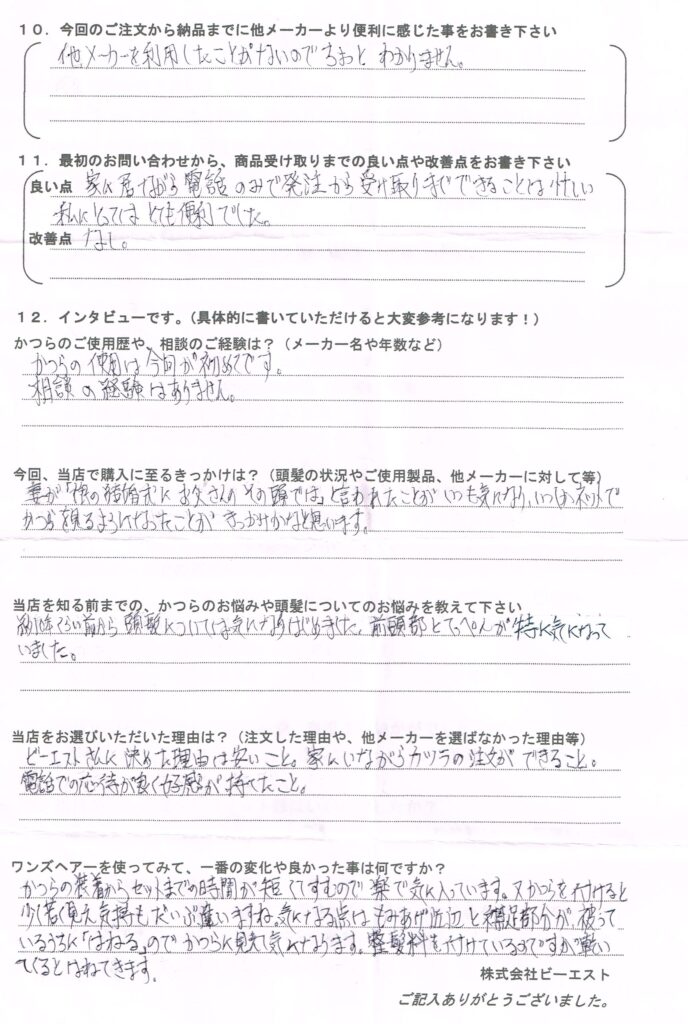 １０．今回のご注文から納品までに他メーカーより便利に感じた事をお書き下さい
他メーカーを利用したことがないのでちょっと わかりません。
１１．最初のお問い合わせから、商品受け取りまでの良い点や改善点をお書き下さい
良い点 家に居ながら電話のみで発注から受け取りまでできることは忙しい
私にとってはとても便利でした。
改善点 なし。
１２．インタビューです。（具体的に書いていただけると大変参考になります！）
かつらのご使用歴や、相談のご経験は？（メーカー名や年数など）
かつらの使用は今回が初めてです。
相談の経験はありません。
今回、当店で購入に至るきっかけは？（頭髪の状況やご使用製品、他メーカーに対して等）
妻が「娘の結婚式にお父さんのその頭では」と言われたことがいつも気になり、いつしかネットで
かつらを見るようになったことがきっかけかなと思います。
当店を知る前までの、かつらのお悩みや頭髪についてのお悩みを教えて下さい
約 年くらい前から頭髪については気になりはじめました。前頭部とてっぺんが特に気になって
いました。
当店をお選びいただいた理由は？（注文した理由や、他メーカーを選ばなかった理由等）
ビーエストさんに決めた理由は安いこと。家にいながらカツラの注文ができること。
電話での応待が良く好感が持てたこと。
ワンズヘアーを使ってみて、一番の変化や良かった事は何ですか？
かつらの装着からセットまでの時間が短くてすむので楽で気に入っています。又かつらを付けると
少し若く見え気持もだいぶ違いますね。気になる点はもみあげ近辺と襟足部分が被って
いるうちに「はねる」のでかつらに見えて気になります。整髪料を付けているのですが乾い
てくるとはねてきます。
株式会社ビーエスト
ご記入ありがとうございました。